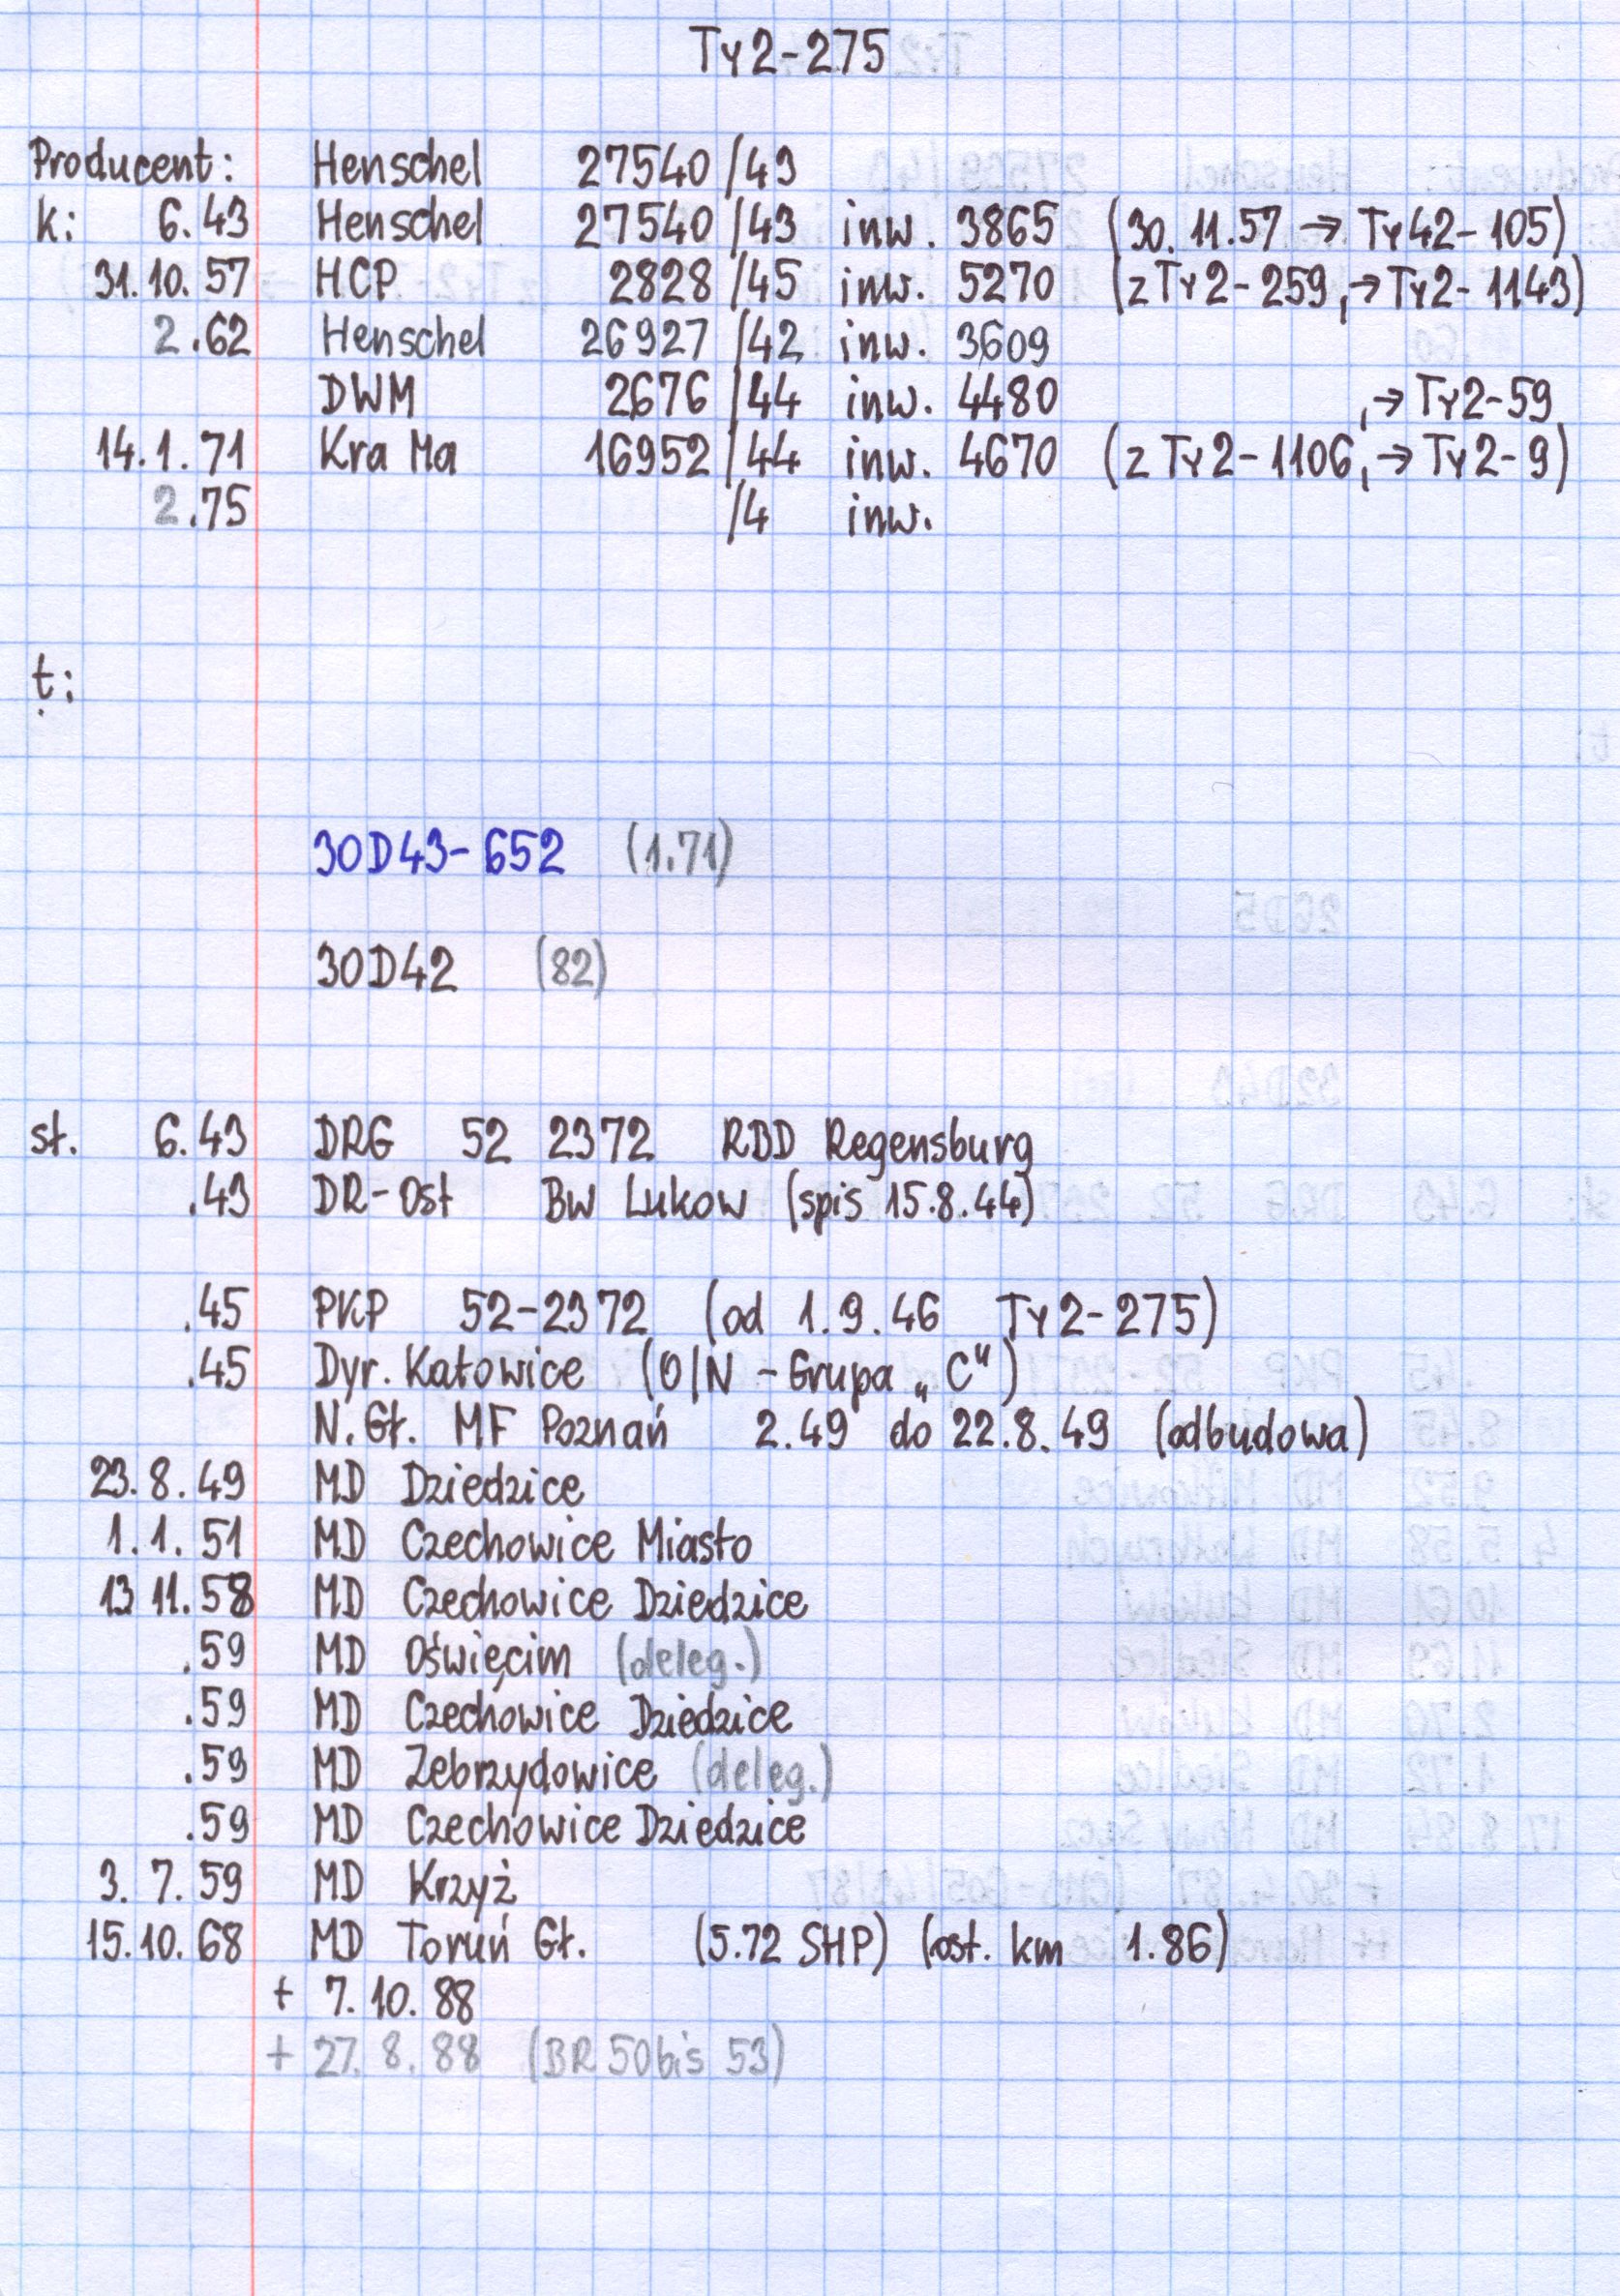 Ty2-275
Producent: Henschel 27540/43
k: 6.43 Henschel 27540/43 inw. 3865 (30.11.57 → Ty42-105)
31.10.57 HCP 2828/45 inw. 5270 (z Ty2-259, → Ty2-1143)
2.62 Henschel 26927/42 inw. 3609
DWM 2676/44 inw. 4480 , → Ty2-59
14.1.71 Kra Ma 16952/44 inw. 4670 (z Ty2-1106, → Ty2-9)
2.75 /4 inw.
t:
30D43-652 (1.71)
30D42 (82)
st. 6.43 DRG 52 2372 RBD Regensburg
.43 DR-Ost BW Lukow (spis 15.8.44)
.45 PKP 52-2372 (od 1.9.46 Ty2-275)
.45 Dyr. Katowice (O/N - Grupa „C")
N.Gł. MF Poznań 2.49 do 22.8.49 (odbudowa)
23.8.49 MD Dziedzice
1.1.51 MD Czechowice Miasto
13 11.58 MD Czechowice Dziedzice
.59 MD Oświęcim (deleg.)
.59 MD Czechowice Dziedzice
.59 MD Zebrzydowice (deleg.)
.59 MD Czechowice Dziedzice
3.7.59 MD Krzyż
15.10.68 MD Toruń Gł. (5.72 SHP) (ost. km 1.86)
+ 7.10.88
+ 27.8.88 (BR 50bis 53)